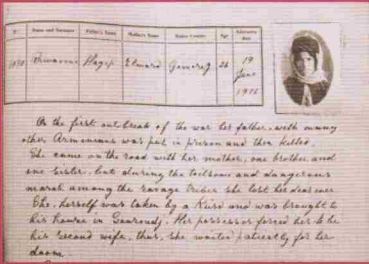 Name and Surname Father's Name Mother's Name Native Country Age Admission date
1010 Hagop Elmard 26 19
June
1926
On the first outbreak of the war her father, with many
other Armenians was put in prison and then killed.
She came on the road with her mother, one brother and
one sister, but during the toilsome and dangerous
march among the savage tribes she lost her dear ones
She, herself was taken by a Kurd and was brought to
his house in Gouroudj. Her possessor forced her to be
his second wife, thus, she waited patiently for her
doom.